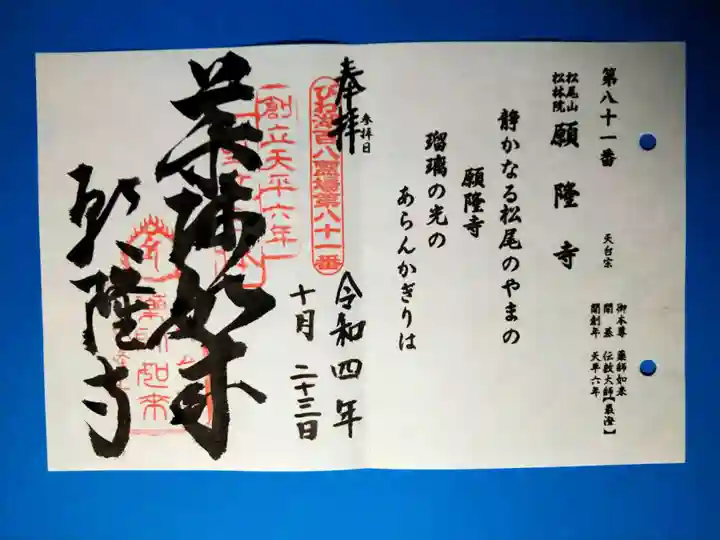 第八十一番
松尾山
松林院
願隆寺
天台宗
御本尊 薬師如来
開基 伝教大師【最澄】
開創年 天平六年
静かなる松尾のやまの
願隆寺
瑠璃の光の
あらんかぎりは
奉拝
参拝日
びわ湖百八霊場第八十一番
令和四年
十月二十三日
創立天平六年
薬師如来
願隆寺
薬師如来